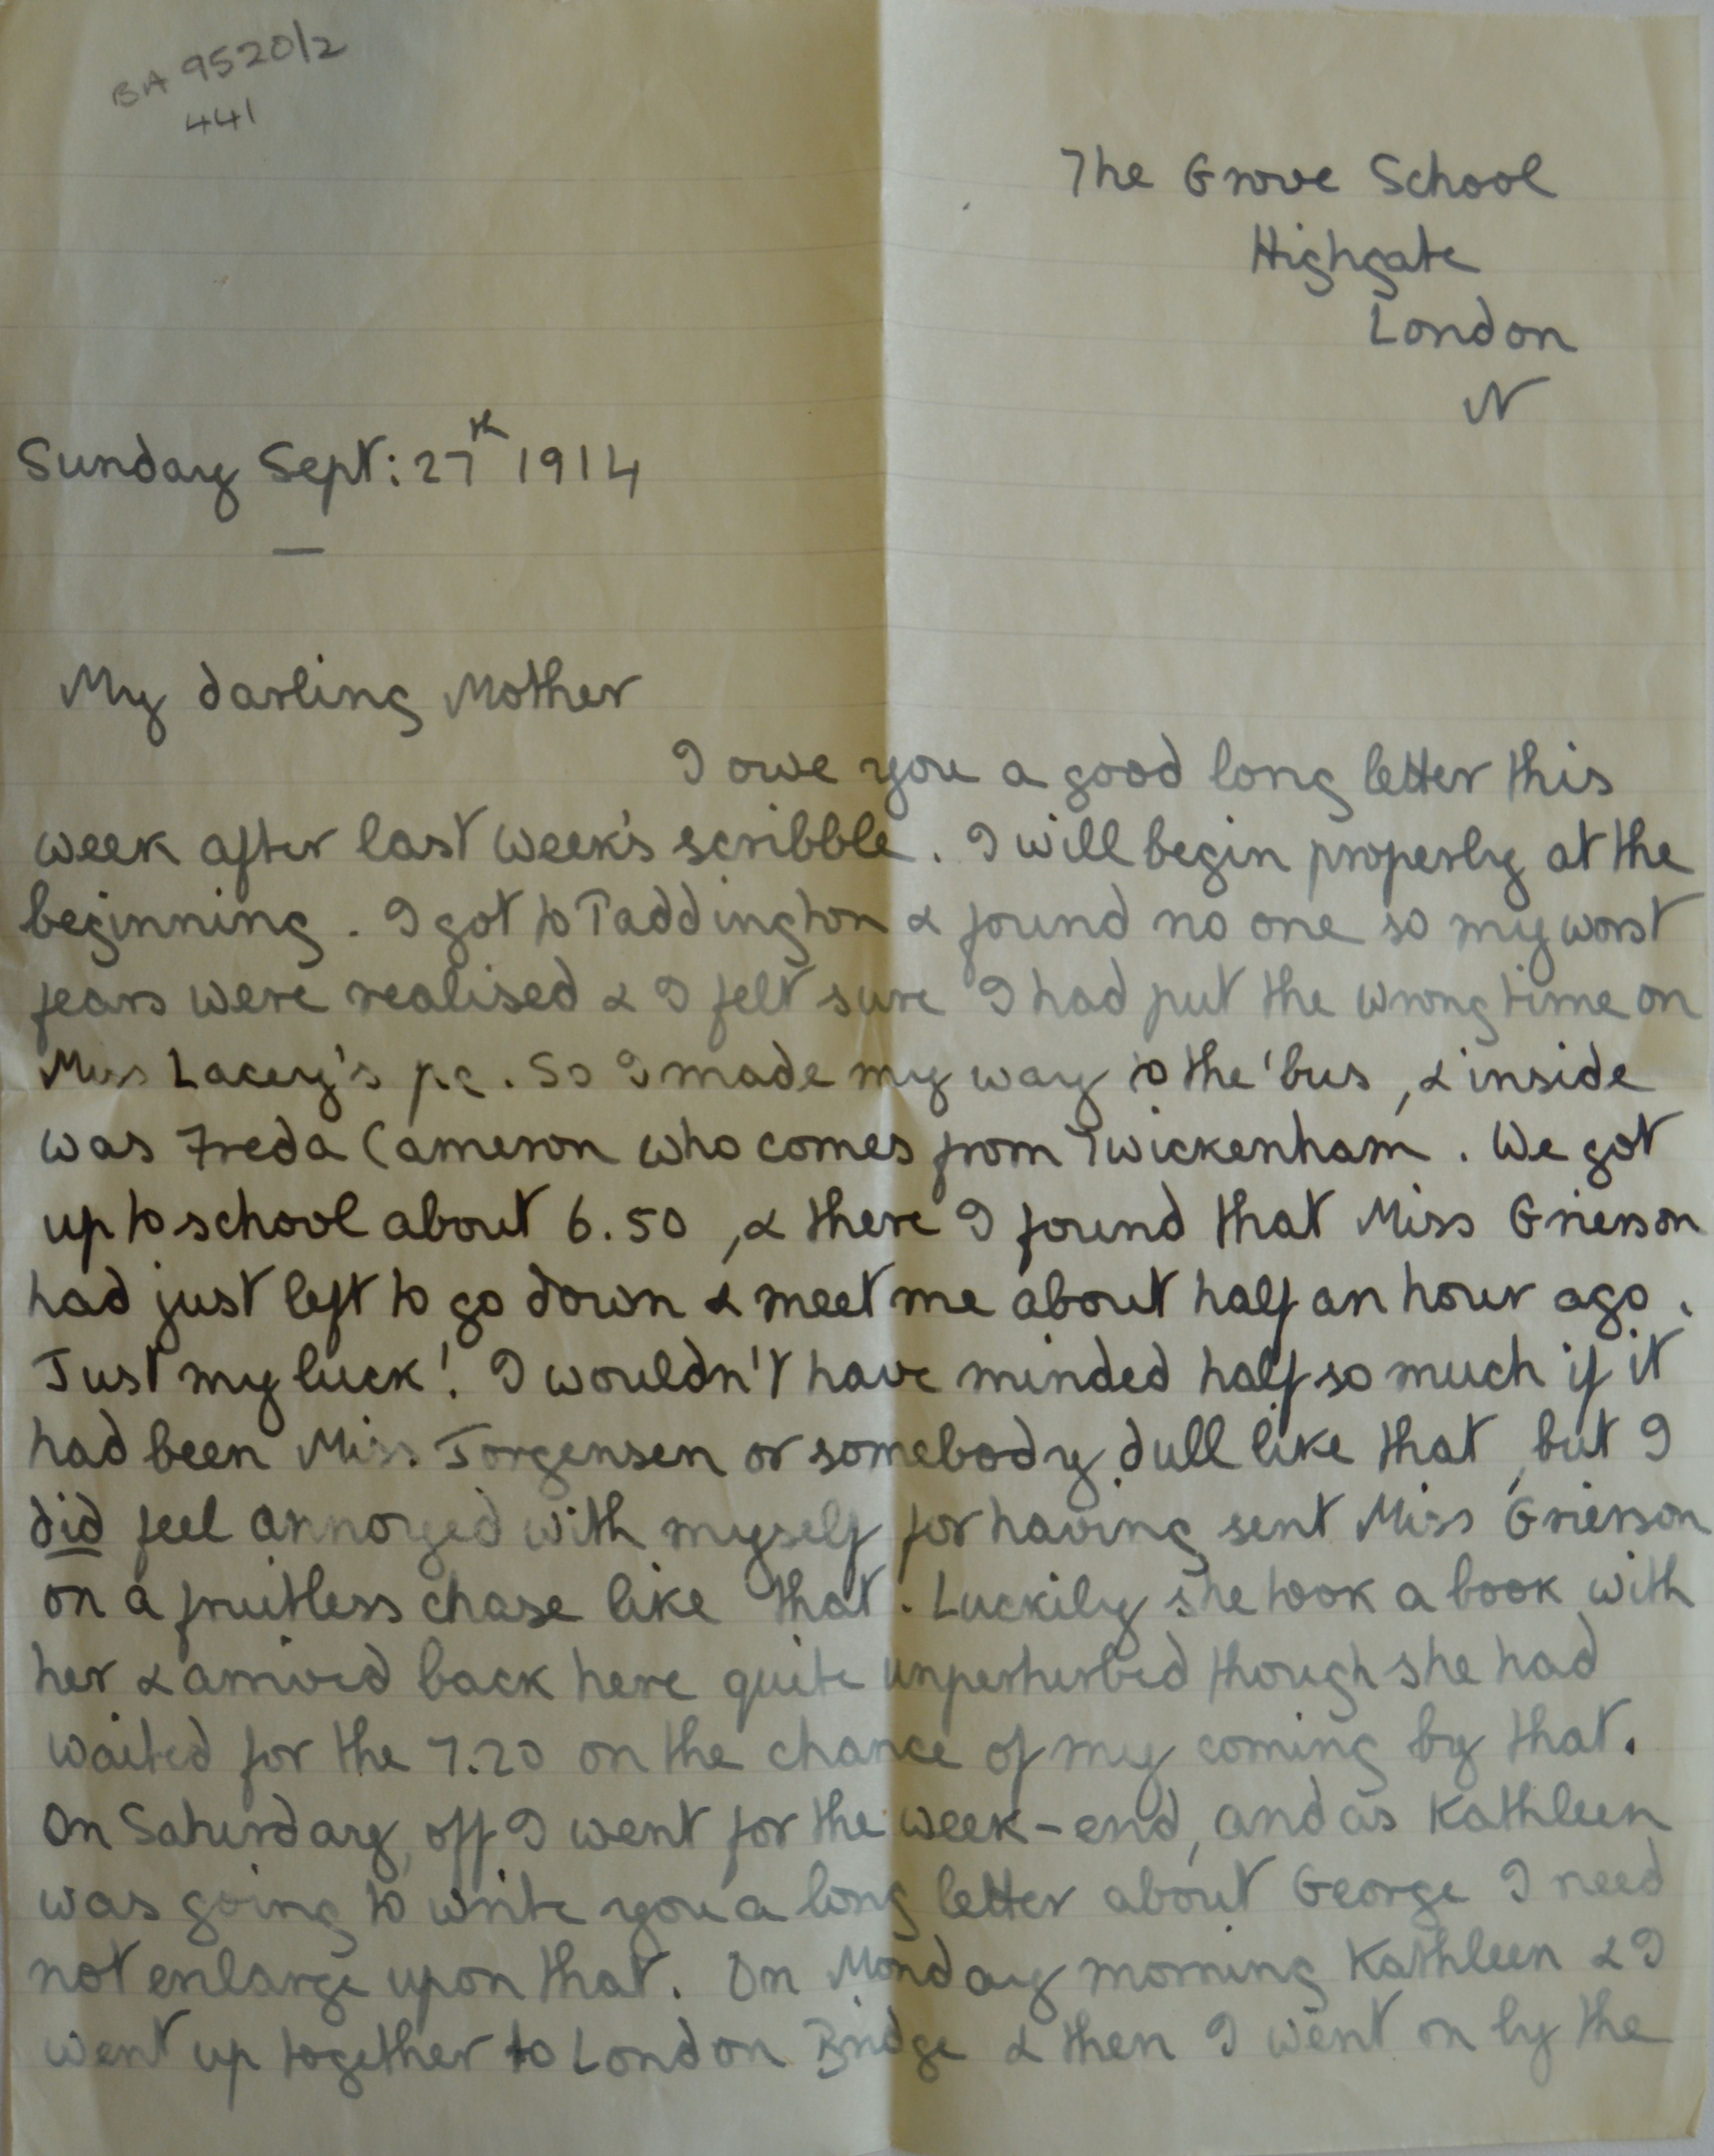 BA 9520/2
441
The Grove School
Highgate
London
N
Sunday Sept: 27th 1914
My darling Mother
I owe you a good long letter this
week after last week's scribble. I will begin properly at the
beginning. I got to Paddington & found no one so my worst
fears were realised & I felt sure I had put the wrong time on
Miss Lacey's pc. So I made my way to the 'bus, & inside
was Freda Cameron who comes from Twickenham. We got
up to school about 6.50, & there I found that Miss Grierson
had just left to go down & meet me about half an hour ago.
Just my luck! I wouldn't have minded half so much if it
had been Miss Jorgensen or somebody dull like that, but I
did feel annoyed with myself for having sent Miss Grierson
on a fruitless chase like that. Luckily she took a book with
her & arrived back here quite unperturbed though she had
waited for the 7.20 on the chance of my coming by that.
On Saturday, off I went for the week-end, and as Kathleen
was going to write you a long letter about George I need
not enlarge upon that. On Monday morning Kathleen & I
went up together to London Bridge & then I went on by the